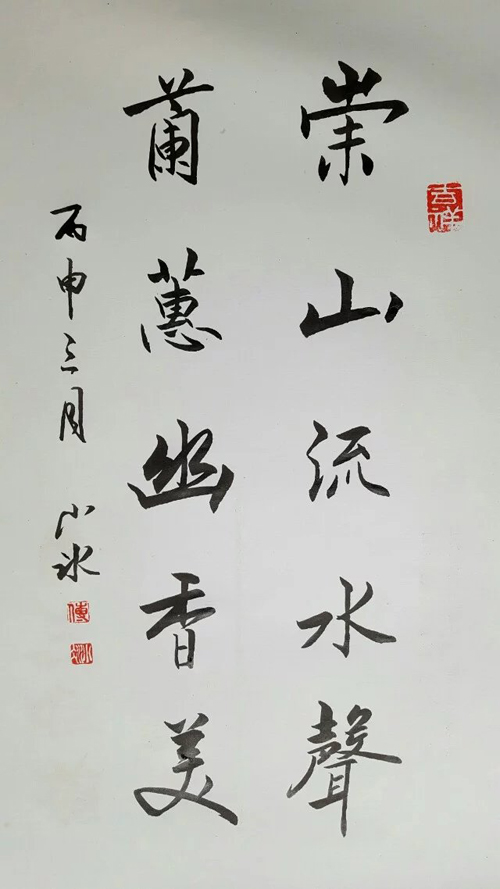 吉祥
崇山流水聲
蘭蕙幽香美
丙申三月 小冰
傅